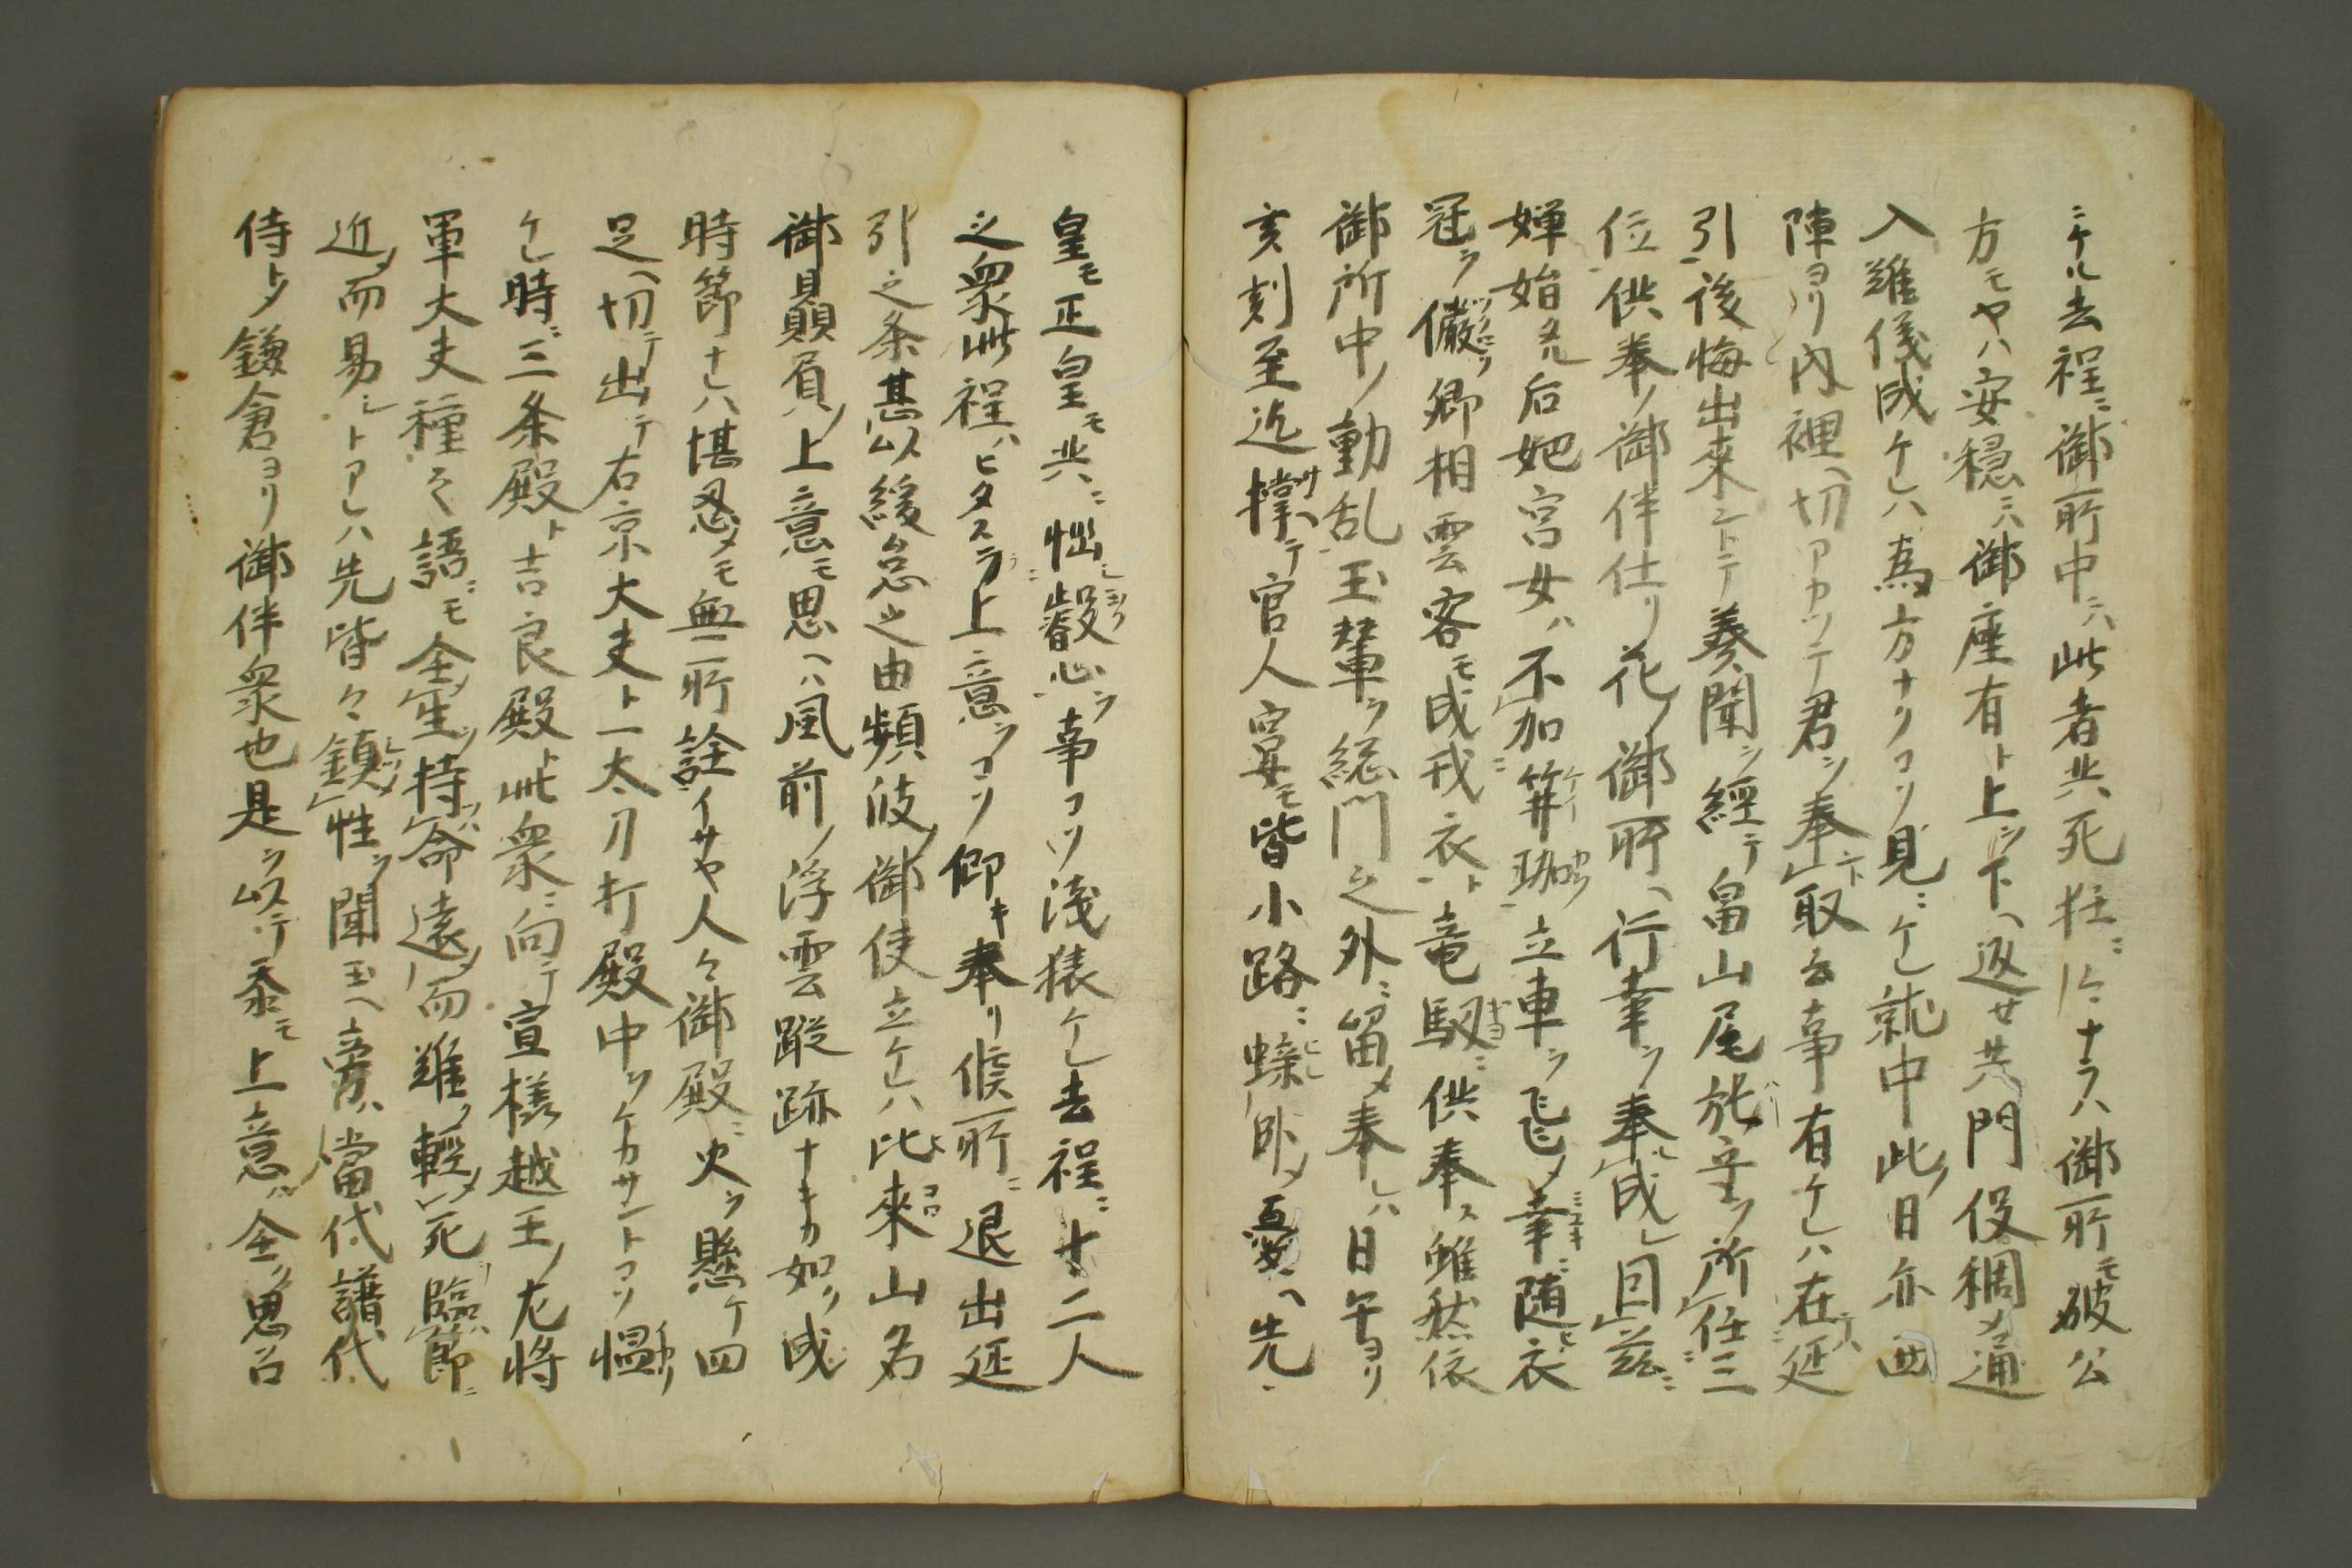 ニケル去程ニ御所中ニハ此者共死狂ニ
方モヤハ安穏ニハ御座有ト上ヲ下ヘ返セ共門役稠メ通
入難儀成ケレハ為方ナクコソ見ニケレ就中此ノ日亦西
陣ヨリ内裡ヘ切アカツテ君ヲ奉取去事有ケレハ在延
引後悔出来ントテ奏聞ヲ経テ畠山尾張守ヲ所任三
位供奉ノ御伴仕リ花ノ御所ヘ行幸ヲ奉成回茲ニ
嬋始兄后妃宮女ハ不加笄珈立車ヲ飛メ幸ニ随ヒ衣
冠ヲ儼ツクロヒシ卿相雲客モ成戎衣ト竜馭ギヨニ供奉ス雖然依
御所中ノ動乱玉輦ヲ総門之外ニ留メ奉レハ日午ヨリ
亥刻至迄撑サヽヘテ官人宴モ皆小路ニ蟓臥メ憂ヘ先
皇モ正皇モ共ニ惱シ叡心ヲ事コソ浅猿ケレ去程ニ十二人
之衆此程ハヒタスラニ上意ヲコソ仰キ奉リ候所ニ退出延
引之条甚以緩怠之由頻波ノ御使立ケレハ比来コロ山名
御贔負ノ上意モ思ヘハ風前ノ浮雲蹤跡ナキカ如ク成
時節ナレハ堪忍メモ無所詮イサヤ人々御殿ニ火ヲ懸ケ四
足ヘ切テ出テ右京大夫ト一太刀打殿中ヲケカサントコソ慍イカリ
ケレ時ニ三条殿ト吉良殿ト此衆ニ向テ宣様越王ノ尤将
軍大夫種之語ニモ全生ヲ持命遠而難ク軽メ死臨節ニ
近而易シトアレハ先皆々鎮性ヲ聞玉ヘ旁ハ當代譜代
侍トメ鎌倉ヨリ御伴衆也是ヲ以テ忝モ上意ハ全ク思召